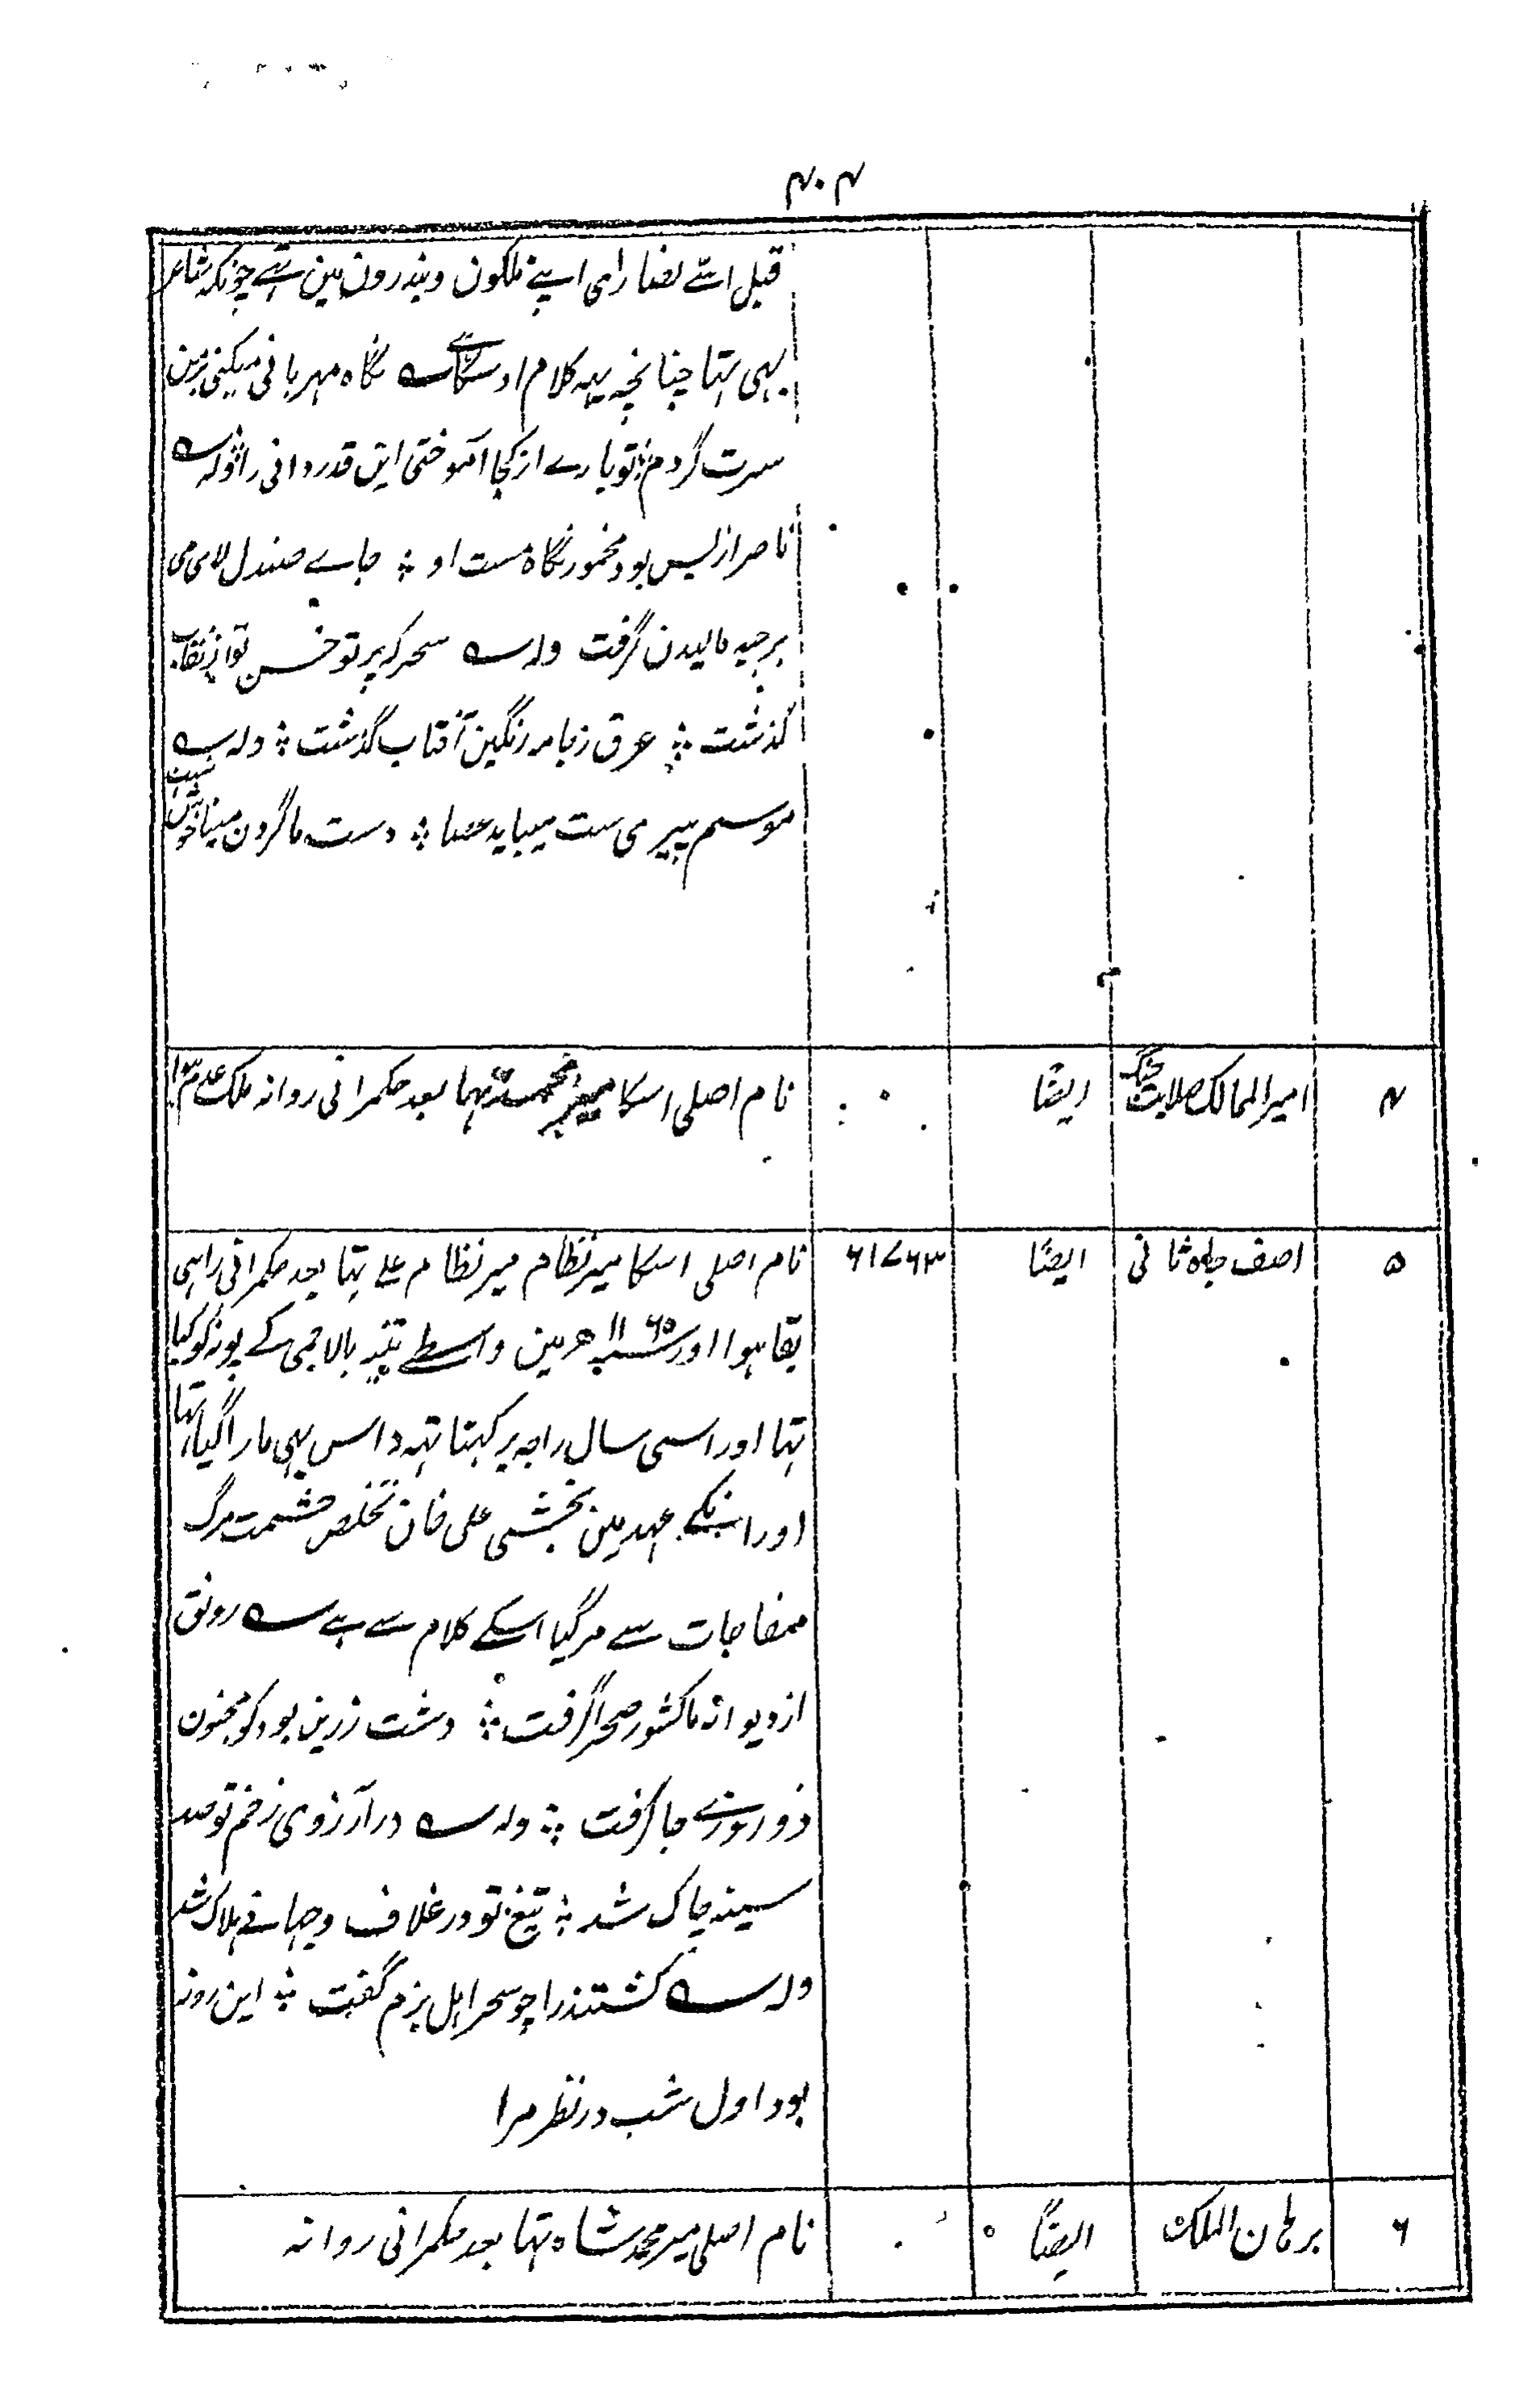 ۴۰۴
قبل اسّے نصارامی اپنے ملکون و بندرون مین تہے چونکہ شاعر
بہی تہا چنانچہ یہہ کلام اوسکا ہے ؎ نگاہ مہربانی میکنی بر من
سرت گردم ؛ تو بارے از کجا آموختی این قدردانی را ؛ ولہ ؎
ناصر از بس بود مخمور نگاہ مست او ؛ جاے صندل لای می
بر جبہ مالیدن گرفت ولہ ؎ سحر کہ پرتو حسن تو از نقاب
گذشت ؛ عرق ز جامہ رنگین آفتاب گذشت ؛ ولہ ؎
موسم پیری ست میباید عصا ؛ دست ما گردن مینا خوش ست
۴ امیر الممالک صلابت جنگ ایضًا نام اصلی اسکا میر محمد تہا بعد حکمرانی روانہ ملک عدم ہوا
۵ اصف جاہ ثانی ایضًا ۱۷۶۳ء نام اصلی اسکا میر نظام میر نظام علے تہا بعد حکمرانی راہی
بقا ہوا اور ۱۱۶۵ھ مین واسطے تنبیہ بالاجی کے پونہ کو گیا
تہا اور اسی سال راجہ پر کہتا تہہ داس بہی مارا گیا تہا
اور انکے عہد مین بخشی علی خان تخلص حشمت مرگ
مفاجات سے مر گیا اسکے کلام سے ہے ؎ رونق
از دیوانہ ما کشور صحرا گرفت ؛ دشت زرین بود کو مجنون
دو روزے جا گرفت ؛ ولہ ؎ در آرزوی زخم تو صد
سینہ چاک شد ؛ تیغ تو در غلاف و جہانے ہلاک شد
ولہ ؎ کشتند را چو سحر اہل بزم گفت ؛ این روز
بود اول شب در نظر مرا
۶ برہان الملک ایضًا نام اصلی میر محمد شاہ تہا بعد حکمرانی روانہ